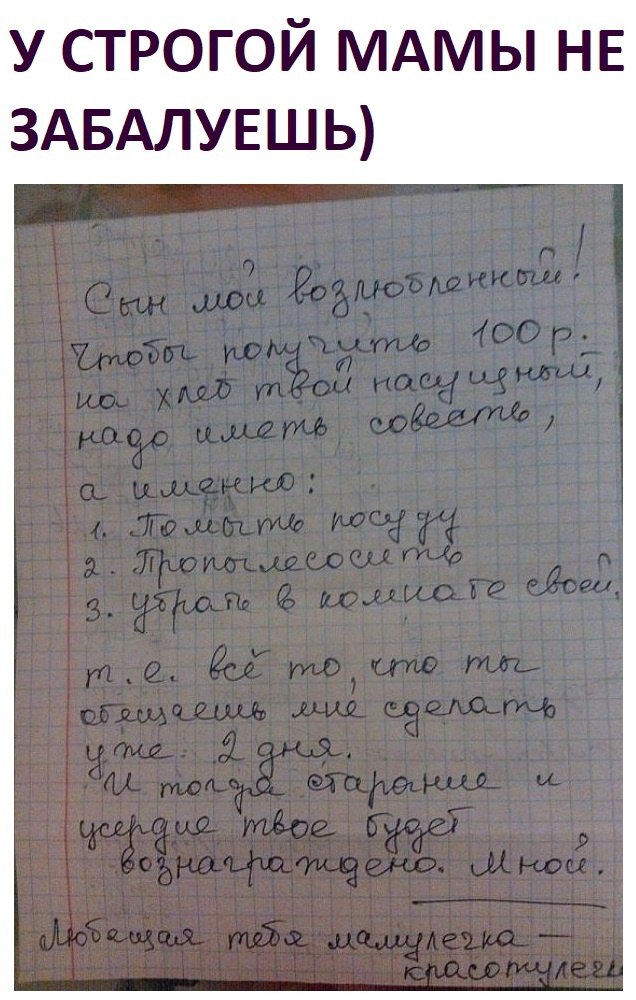 У СТРОГОЙ МАМЫ НЕ
ЗАБАЛУЕШЬ)
Сын мой возлюбленный!
Чтобы получить 100 р.
на хлеб твой насущный,
надо иметь совесть,
а именно:
1. Помыть посуду
2. Пропылесосить
3. убрать в комнате своей.
т.е. всё то, что ты
обещаешь мне сделать
уже 2 дня.
И тогда старание и
усердие твое будет
вознаграждено. Мной.
Любящая тебя мамулечка —
красотулечк